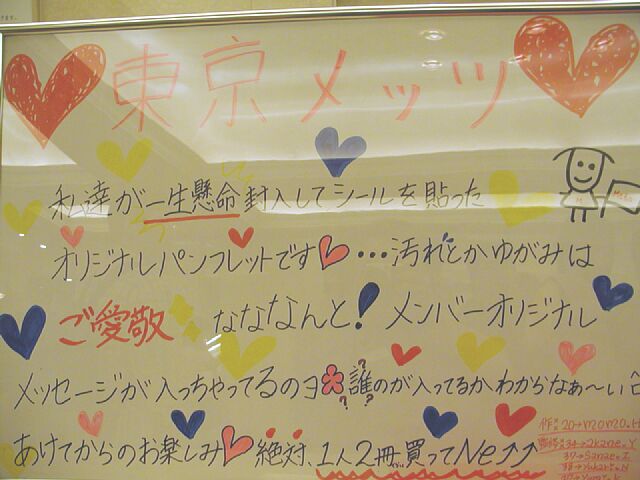 東京メッツ
私達が一生懸命封入してシールを貼った
オリジナルパンフレットです…汚れとかゆがみは
ご愛敬 なななんと! メンバーオリジナル
メッセージが入っちゃってるのヨ 誰のが入ってるかわからなぁ〜い
あけてからのお楽しみ 絶対、1人2冊買ってNe↑↑
作 20→momo.H
34→akane.Y
37→Sanae.I
38→Yukari.N